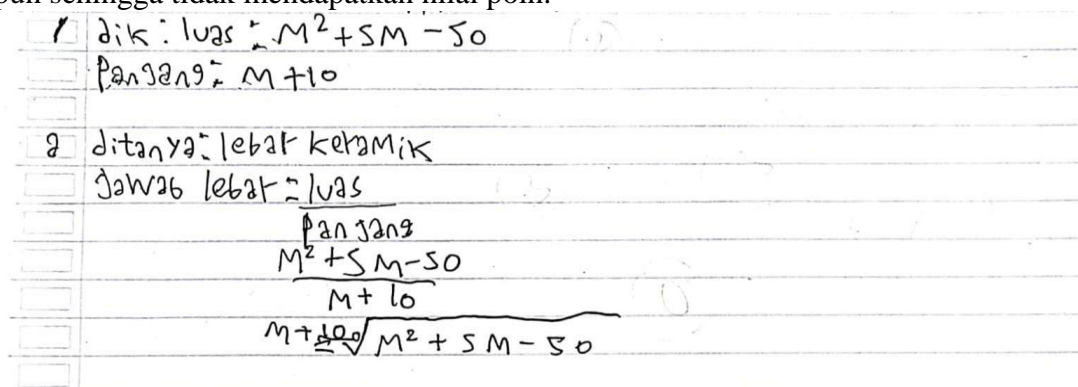 sehingga tidak mendapatkan nilai poin.
1 dik : luas = M² + 5M - 50
Panjang = M + 10
2 ditanya : lebar keramik
Jawab lebar = luas
Panjang
M² + 5M - 50
M + 10
M + 10 √ M² + 5M - 50